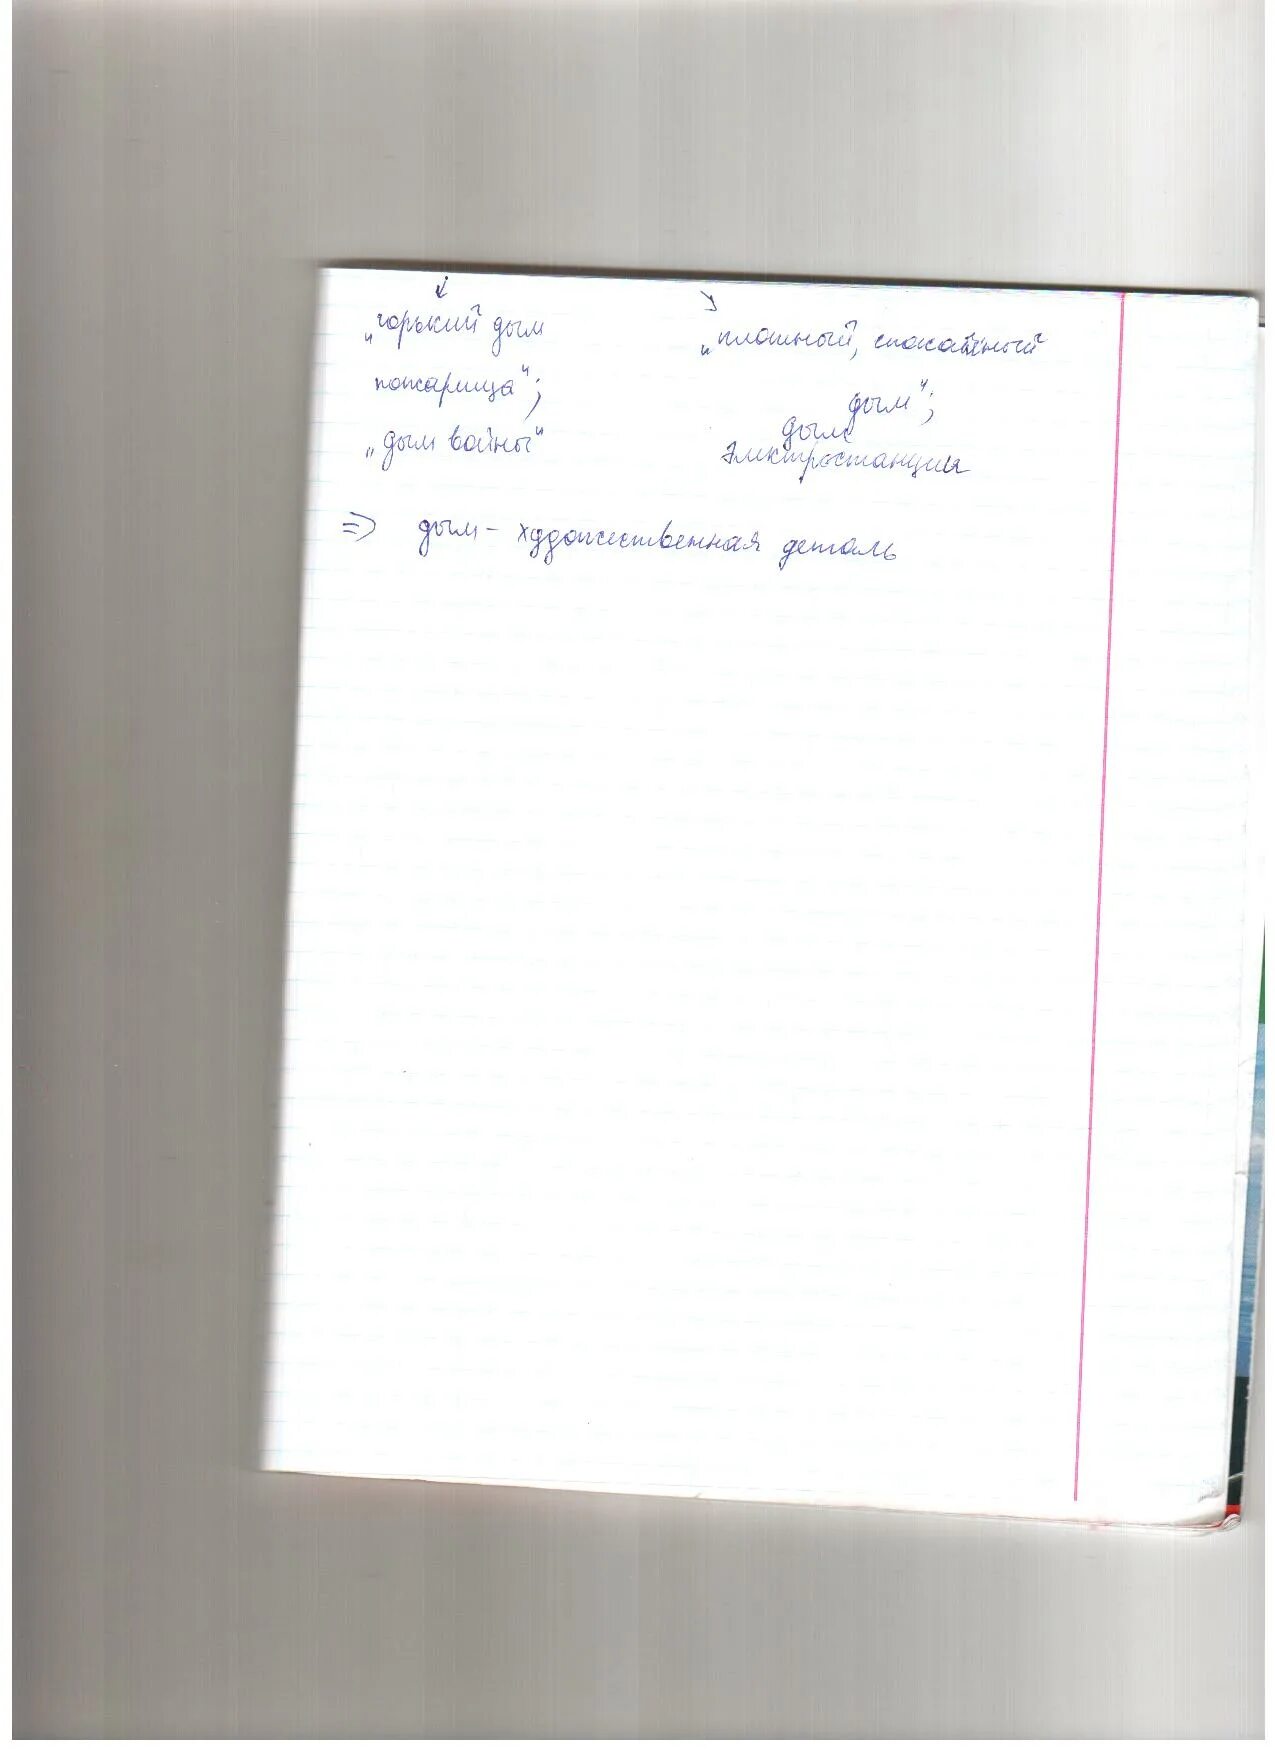 ↓ ↘
„горький дым „плотный, спокойный
пожарища“; дым“;
„дым войны“ дым
электростанции
=> дым – художественная деталь